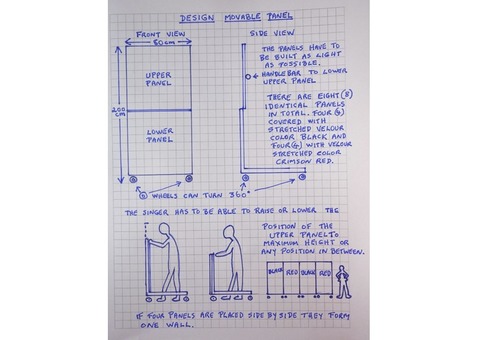 DESIGN MOVABLE PANEL
FRONT VIEW
80cm
SIDE VIEW
UPPER
PANEL
200
cm
LOWER
PANEL
THE PANELS HAVE TO
BE BUILT AS LIGHT
AS POSSIBLE.
HANDLEBAR TO LOWER
UPPER PANEL
THERE ARE EIGHT (8)
IDENTICAL PANELS
IN TOTAL. FOUR (4)
COVERED WITH
STRETCHED VELOUR
COLOR BLACK AND
FOUR (4) WITH VELOUR
STRETCHED COLOR
CRIMSON RED.
WHEELS CAN TURN 360°
THE SINGER HAS TO BE ABLE TO RAISE OR LOWER THE
POSITION OF THE
UPPER PANEL TO
MAXIMUM HEIGHT OR
ANY POSITION IN BETWEEN.
BLACK RED BLACK RED
IF FOUR PANELS ARE PLACED SIDE BY SIDE THEY FORM
ONE WALL.